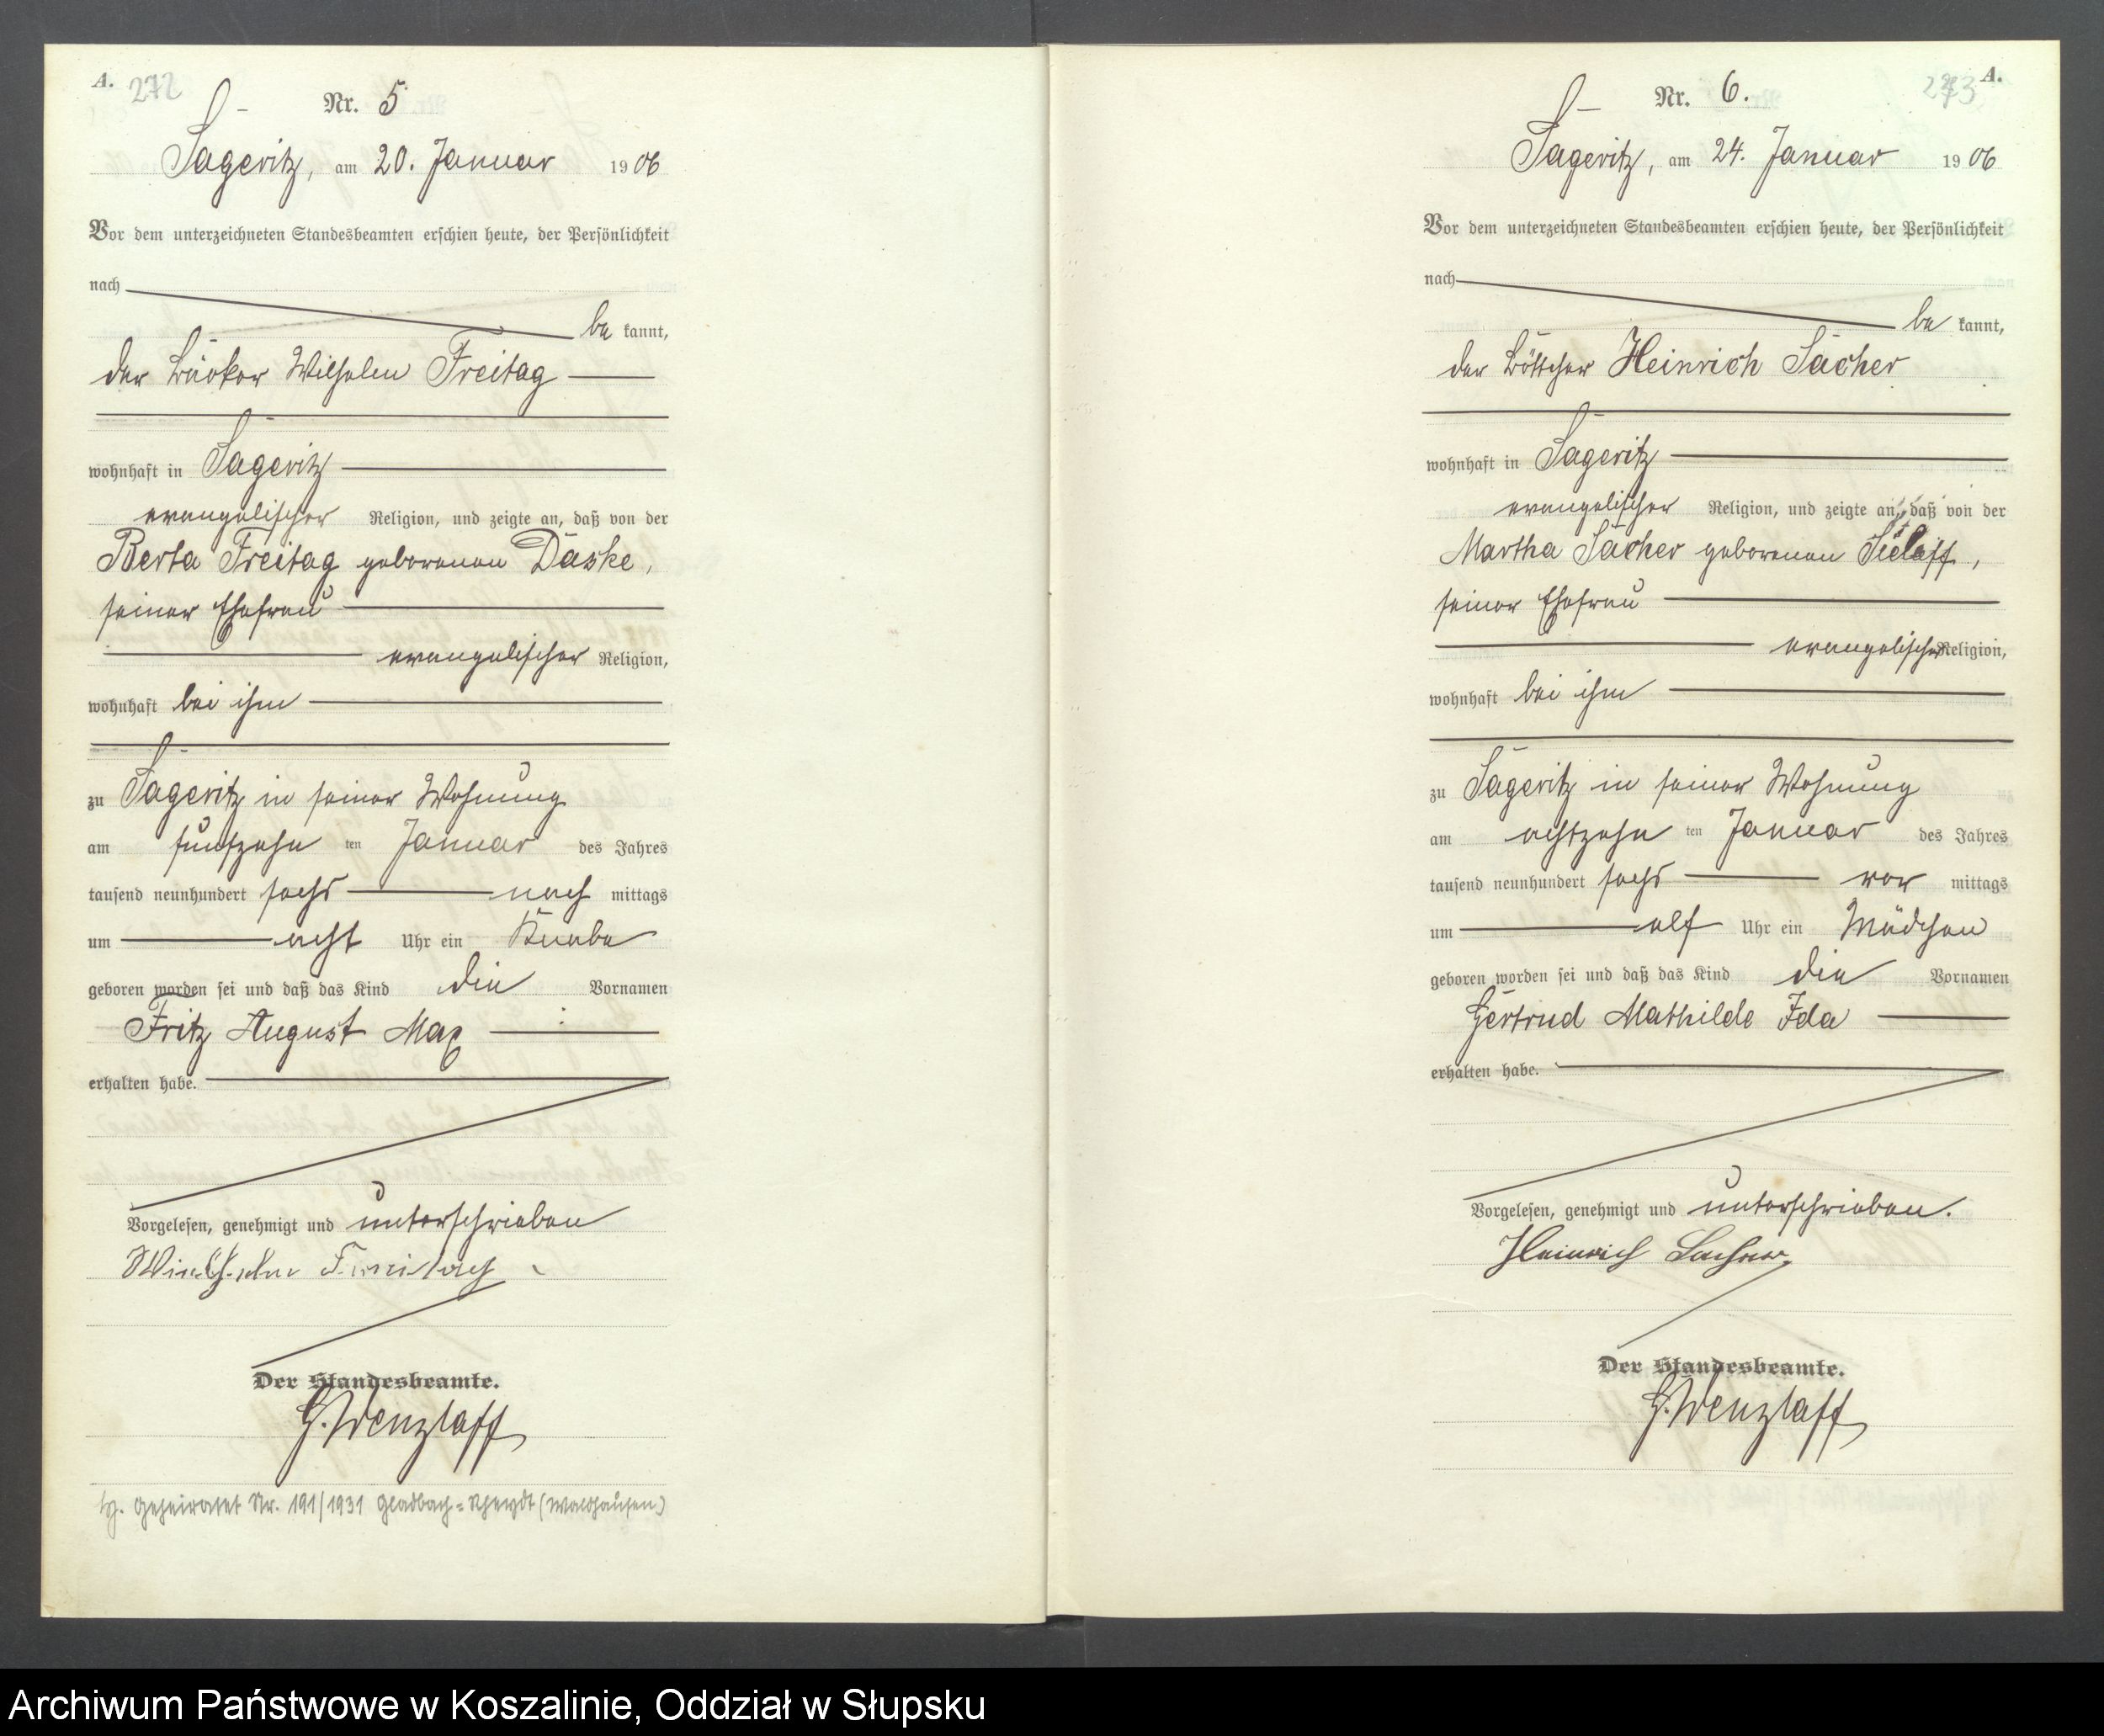 A. 272
Nr. 5
Sageritz, am 20. Januar 1906
Vor dem unterzeichneten Standesbeamten erschien heute, der Persönlichkeit
nach
be kannt,
der Bäcker Wilhelm Freitag
wohnhaft in Sageritz
evangelischer Religion, und zeigte an, daß von der
Berta Freitag geborenen Daske,
seiner Ehefrau
evangelischer Religion,
wohnhaft bei ihm
zu Sageritz in seiner Wohnung
am fünfzehn ten Januar des Jahres
tausend neunhundert sechs nach mittags
um acht Uhr ein Knabe
geboren worden sei und daß das Kind die Vornamen
Fritz August Max
erhalten habe.
Vorgelesen, genehmigt und unterschrieben
Freitag
Der Standesbeamte.
G. Wenzlaff
geheiratet Nr. 191/1931 Gladbach-Rheydt (Waldhausen)
273 A.
Nr. 6.
Sageritz, am 24. Januar 1906
Vor dem unterzeichneten Standesbeamten erschien heute, der Persönlichkeit
nach
be kannt,
der Böttcher Heinrich Sacher
wohnhaft in Sageritz
evangelischer Religion, und zeigte an, daß von der
Martha Sacher geborenen
seiner Ehefrau
evangelischer Religion,
wohnhaft bei ihm
zu Sageritz in seiner Wohnung
am achtzehn ten Januar des Jahres
tausend neunhundert sechs vor mittags
um elf Uhr ein Mädchen
geboren worden sei und daß das Kind die Vornamen
Gertrud Mathilde Ida
erhalten habe.
Vorgelesen, genehmigt und unterschrieben.
Heinrich Sacher.
Der Standesbeamte.
G. Wenzlaff
Archiwum Państwowe w Koszalinie, Oddział w Słupsku